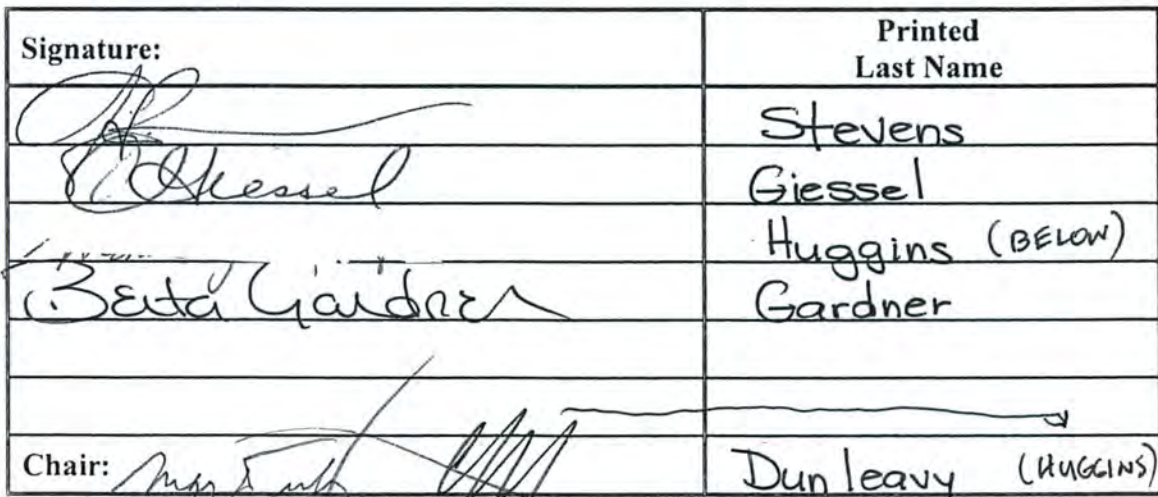 Signature: Printed
Last Name
Stevens
Giessel Giessel
Huggins (BELOW)
Berta Gardner Gardner
Chair: Dunleavy (HUGGINS)